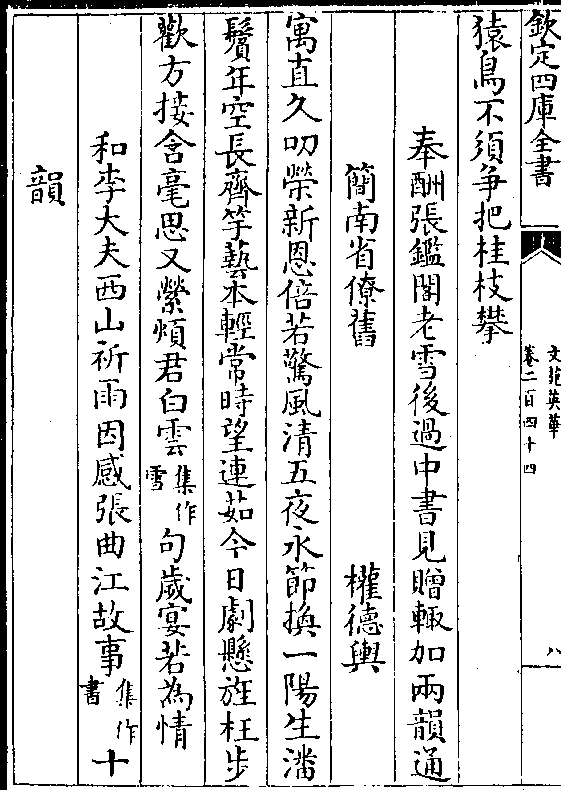 欽定四庫全書
文苑英華
卷二百四十四
八
猿鳥不須爭把桂枝攀
奉酬張鑑閣老雪後過中書見贈輙加兩韻通
簡南省僚舊
權德輿
寓直久叨榮新恩倍若驚風清五夜永節換一陽生潘
鬢年空長齊竽藝本輕常時望連茹今日劇懸旌枉步
歡方接含毫思又縈煩君白雲集作雪句歲宴若為情
和李大夫西山祈雨因感張曲江故事集作書十
韻